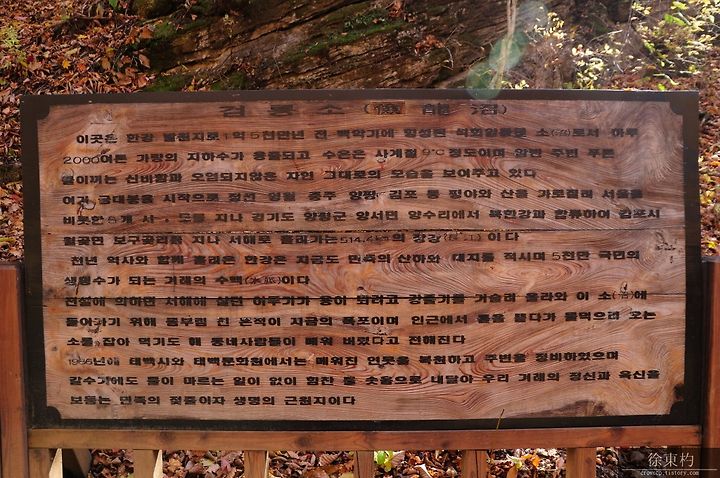 검룡소(儉龍沼)
이곳은 한강 발원지로 1억 5천만년 전 백악기에 형성된 석회암동굴 소(沼)로서 하루
2000여톤 가량의 지하수가 용출되고 수온은 사계절 9°C 정도이며 암반 주변 푸른
물이끼는 신비함과 오염되지않은 자연 그대로의 모습을 보여주고 있다
여기 금대봉을 시작으로 정선 영월 충주 양평 김포 등 평야와 산을 가로질러 서울을
비롯한 5개 시 · 도를 지나 경기도 양평군 양서면 양수리에서 북한강과 합류하여 김포시
월곶면 보구곶리를 지나 서해로 흘러가는 514.4㎞의 장강(長江)이다
천년 역사와 함께 흘러온 한강은 지금도 민족의 산하와 대지를 적시며 5천만 국민의
생명수가 되는 겨레의 수맥(水脈)이다
전설에 의하면 서해에 살던 이무기가 용이 되려고 강줄기를 거슬러 올라와 이 소(沼)에
들어가기 위해 몸부림 친 흔적이 지금의 폭포이며 인근에서 풀을 뜯다가 물먹으러 오는
소를 잡아 먹기도 해 동네사람들이 메워 버렸다고 전해진다
1986년에 태백시와 태백문화원에서는 메워진 연못을 복원하고 주변을 정비하였으며
갈수기에도 물이 마르는 일이 없이 힘찬 물 솟음으로 내달아 우리 겨레의 정신과 육신을
보듬는 민족의 젖줄이자 생명의 근원지이다
徐東杓
tistory.com